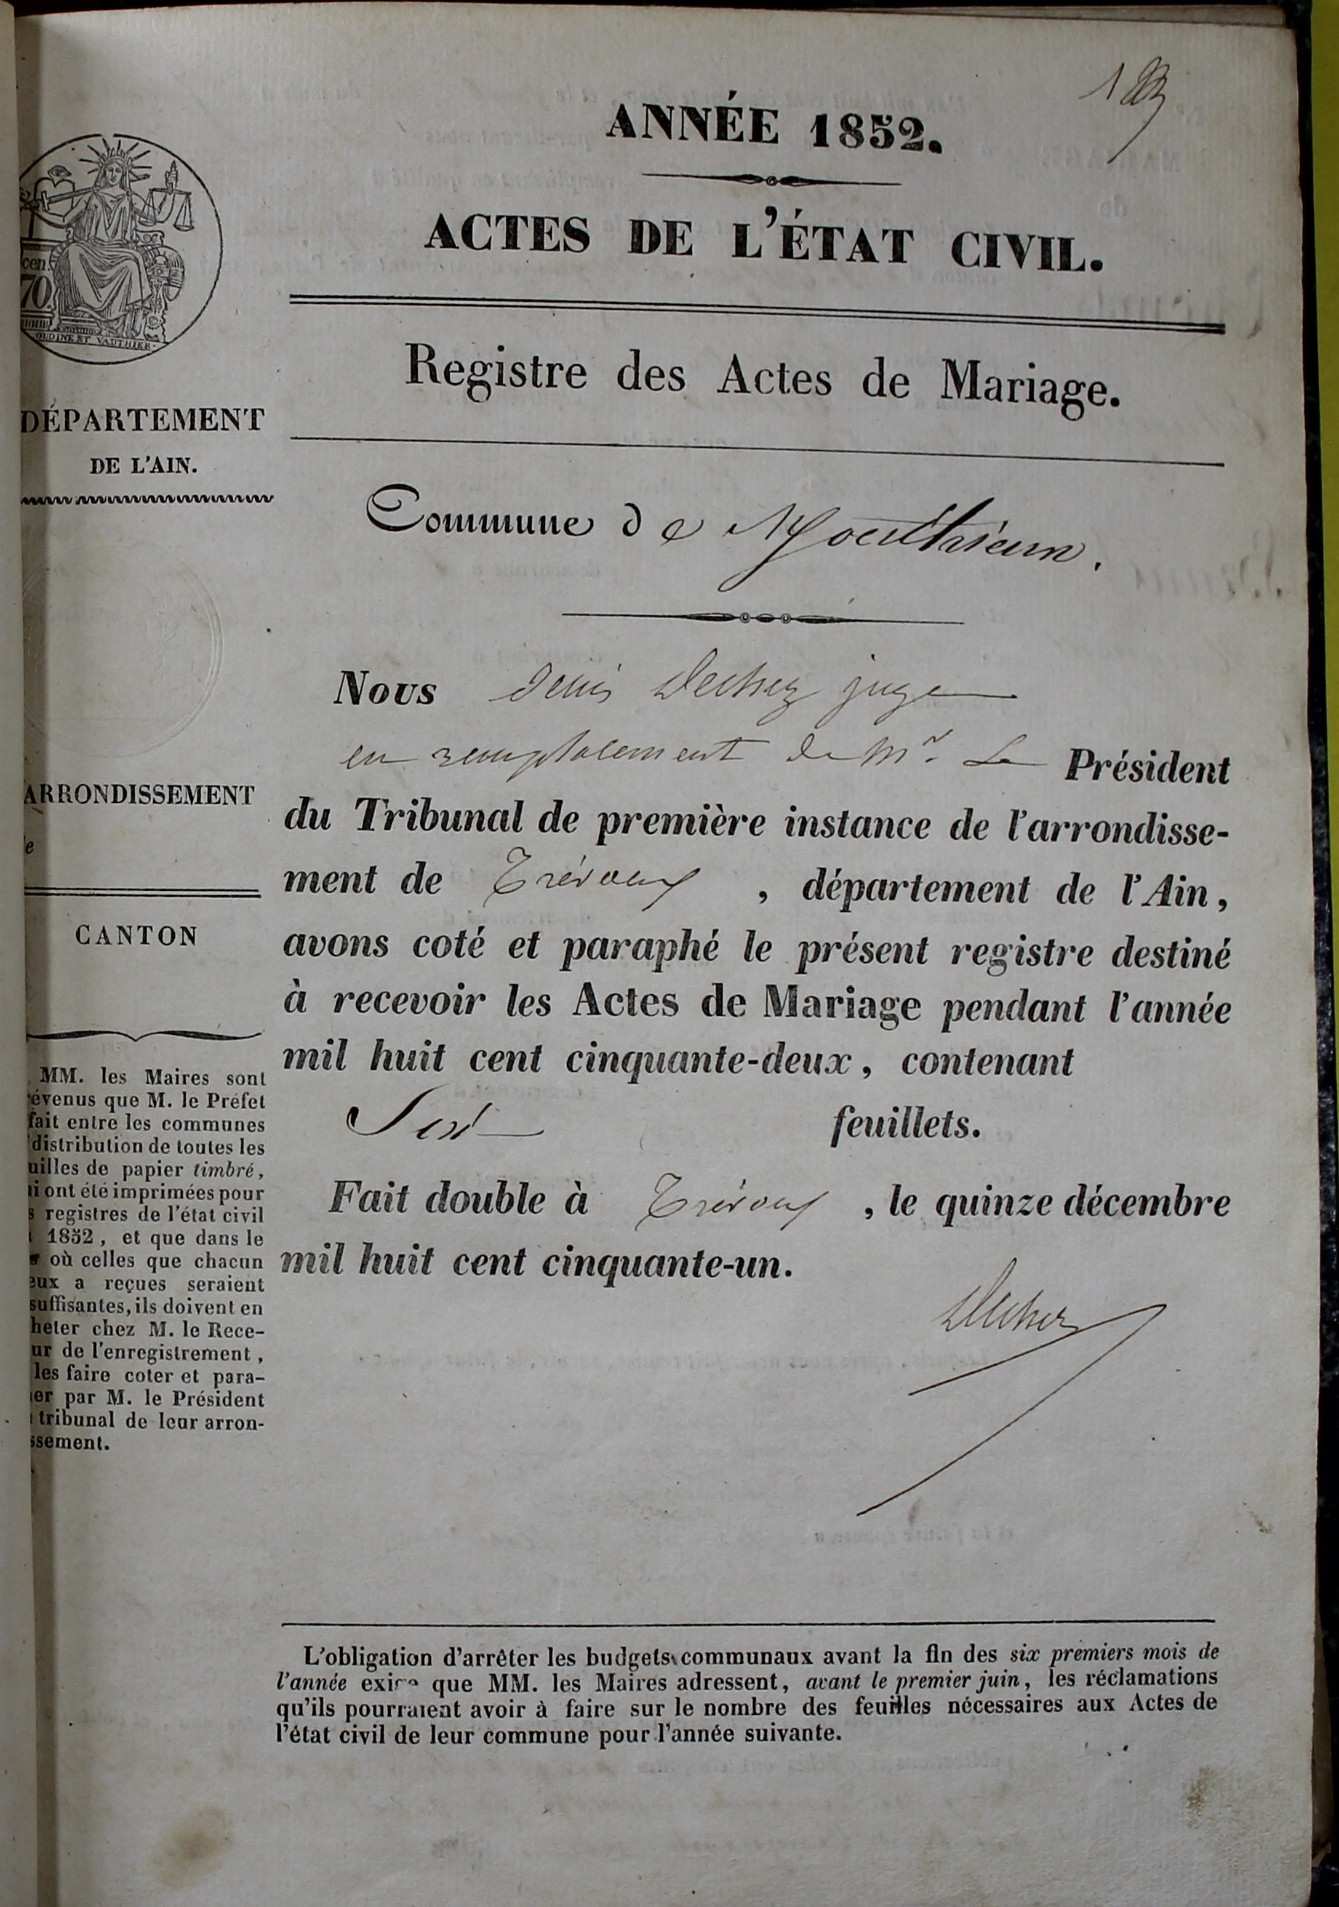 ANNÉE 1852.
ACTES DE L'ÉTAT CIVIL.
Registre des Actes de Mariage.
cen
70
ORDINE ET VAUTHIER
DÉPARTEMENT
DE L'AIN.
Commune de Monthieux.
Nous Denis Dechez juge
en remplacement de Mr. Le Président
du Tribunal de première instance de l'arrondisse-
ment de Trévoux, département de l'Ain,
avons coté et paraphé le présent registre destiné
à recevoir les Actes de Mariage pendant l'année
mil huit cent cinquante-deux, contenant
Six feuillets.
Fait double à Trévoux, le quinze décembre
mil huit cent cinquante-un.
Dechez
ARRONDISSEMENT
e
CANTON
MM. les Maires sont
évenus que M. le Préfet
fait entre les communes
distribution de toutes les
uilles de papier timbré,
i ont été imprimées pour
s registres de l'état civil
1852, et que dans le
où celles que chacun
eux a reçues seraient
suffisantes, ils doivent en
heter chez M. le Rece-
ur de l'enregistrement,
les faire coter et para-
er par M. le Président
tribunal de leur arron-
ssement.
L'obligation d'arrêter les budgets communaux avant la fin des six premiers mois de
l'année exige que MM. les Maires adressent, avant le premier juin, les réclamations
qu'ils pourraient avoir à faire sur le nombre des feuilles nécessaires aux Actes de
l'état civil de leur commune pour l'année suivante.